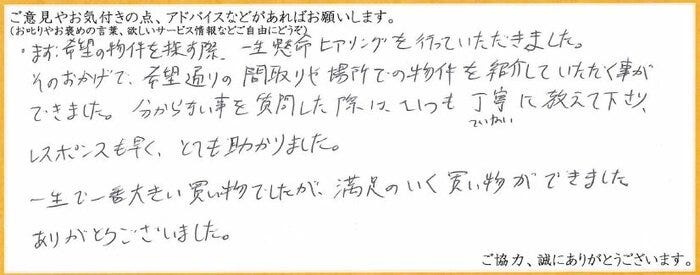 ご意見やお気付きの点、アドバイスなどがあればお願いします。
(お叱りやお褒めの言葉、欲しいサービス情報などご自由にどうぞ)
・まず、希望の物件を探す際、一生懸命ヒアリングを行っていただきました。
そのおかげで、希望通りの間取りや場所での物件を紹介していただく事が
できました。分からない事を質問した際は、いつも丁寧に教えて下さり、
ていねい
レスポンスも早く、とても助かりました。
一生で一番大きい買い物でしたが、満足のいく買い物ができました
ありがとうございました。
ご協力、誠にありがとうございます。